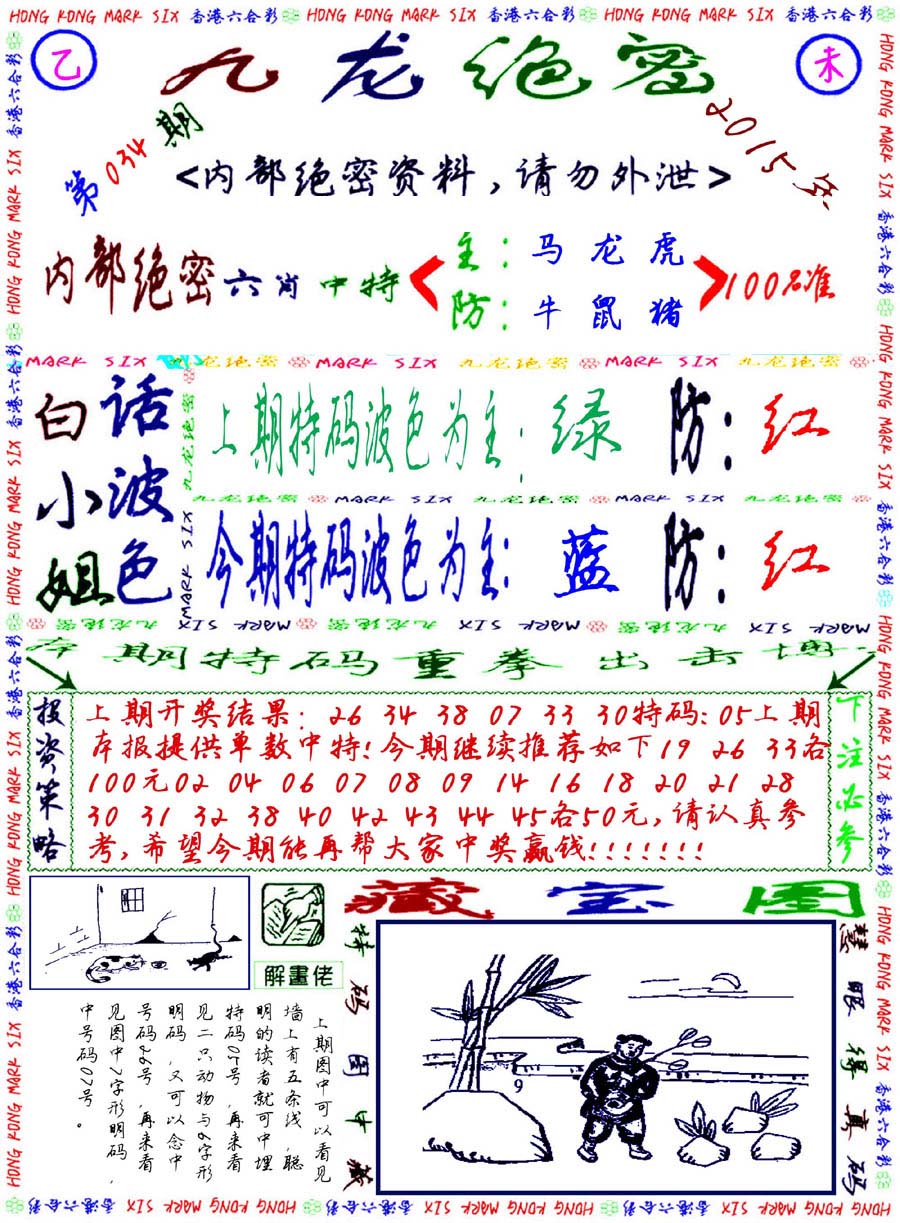 HONG KONG MARK SIX 香港六合彩 HONG KONG MARK SIX 香港六合彩 HONG KONG MARK SIX 香港六合彩
乙
九龙绝密
未
第034期
2015年
<内部绝密资料,请勿外泄>
内部绝密六肖中特
主:马龙虎
防:牛鼠猪
100%准
MARK SIX 九龙绝密 MARK SIX 九龙绝密 MARK SIX 九龙绝密
白话
小波
姐色
上期特码波色为主:绿 防:红
九龙绝密 MARK SIX 九龙绝密 MARK SIX 九龙绝密
今期特码波色为主:蓝 防:红
九龙绝密 MARK SIX 九龙绝密 MARK SIX 九龙绝密 MARK SIX
本期特码重拳出击博
投资策略
上期开奖结果: 26 34 38 07 33 30特码:05上期
本报提供单数中特!今期继续推荐如下19 26 33各
100元02 04 06 07 08 09 14 16 18 20 21 28
30 31 32 38 40 42 43 44 45各50元,请认真参
考,希望今期能再帮大家中奖赢钱!!!!!!!
下注必参
解畫佬
藏宝图
特码图中藏
慧眼得真码
9
上期图中可以看见
墙上有五条线,聪
明的读者就可中埋
特码05号,再来看
见二只动物与6字形
明码,又可以念中
号码26号,再来看
见图中7字形明码,
中号码07号。
HONG KONG MARK SIX 香港六合彩 HONG KONG MARK SIX 香港六合彩 HONG KONG MARK SIX 香港六合彩